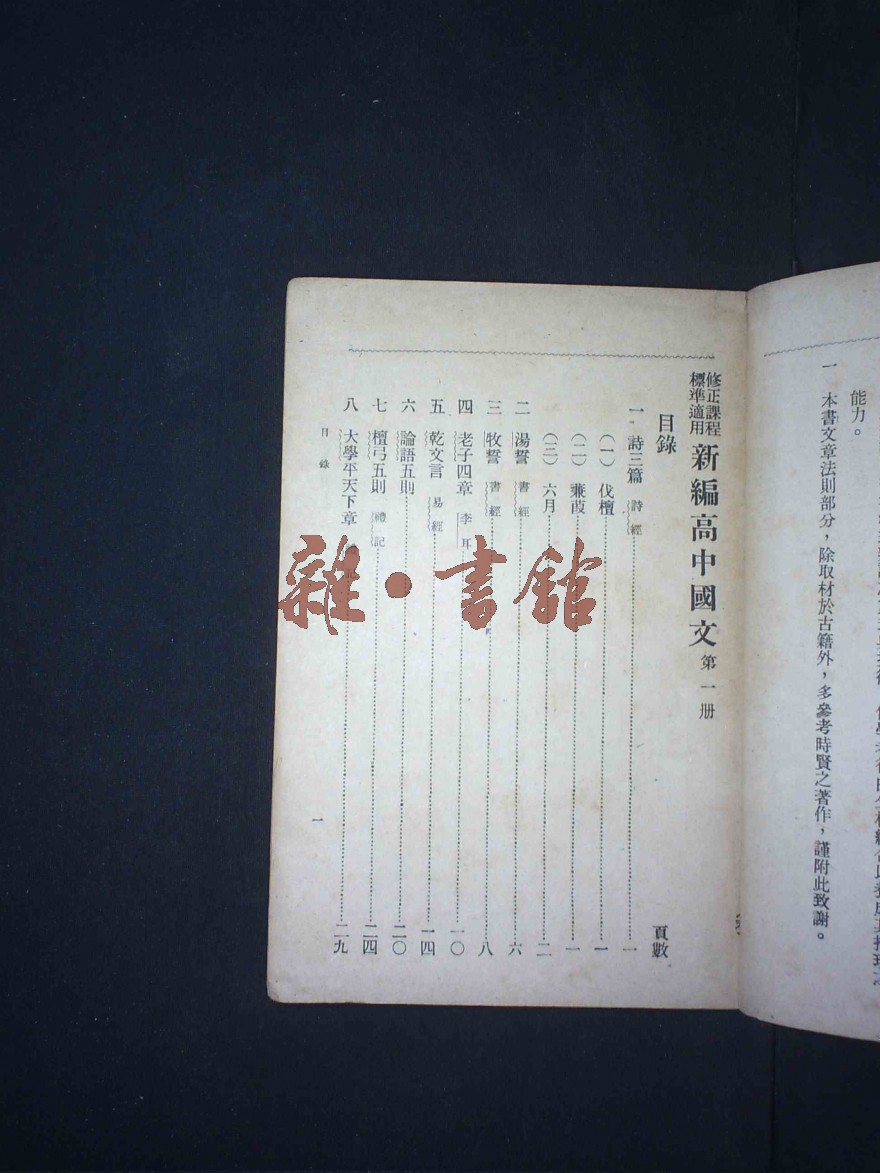 能力。
一 本書文章法則部分，除取材於古籍外，多參考時賢之著作，謹附此致謝。
修正課程標準適用 新編高中國文 第一册
目錄 頁數
一 詩三篇 詩經 一
（一） 伐檀 一
（二） 蒹葭 一
（三） 六月 二
二 湯誓 書經 六
三 牧誓 書經 八
四 老子四章 李耳 一〇
五 乾文言 易經 一四
六 論語五則 二〇
七 檀弓五則 禮記 二四
八 大學平天下章 二九
目錄 一
雜·書館